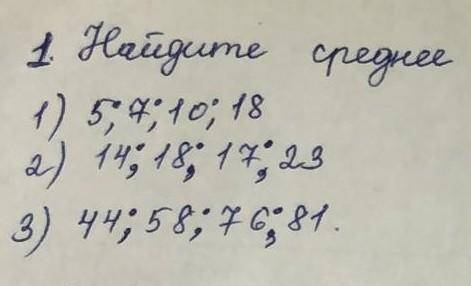 1. Найдите среднее
1) 5; 7; 10; 18
2) 14; 18; 17; 23
3) 44; 58; 76; 81.